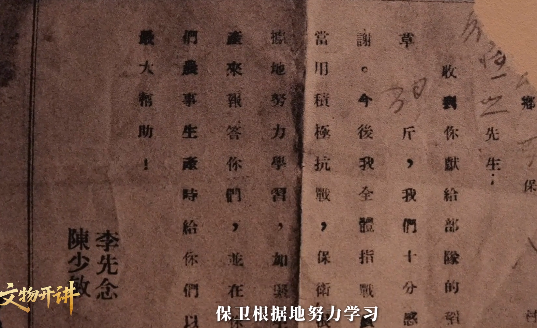 鄉 保
先生：
收到你獻給部隊的稻
草 30 斤，我們十分感
謝。今後我全體指戰
當用積極抗戰，保衛
據地努力學習，加緊
產來報答你們，並在
們農事生產時給你們以
最大幫助！
李先念
陳少敏
文物开讲
保卫根据地努力学习